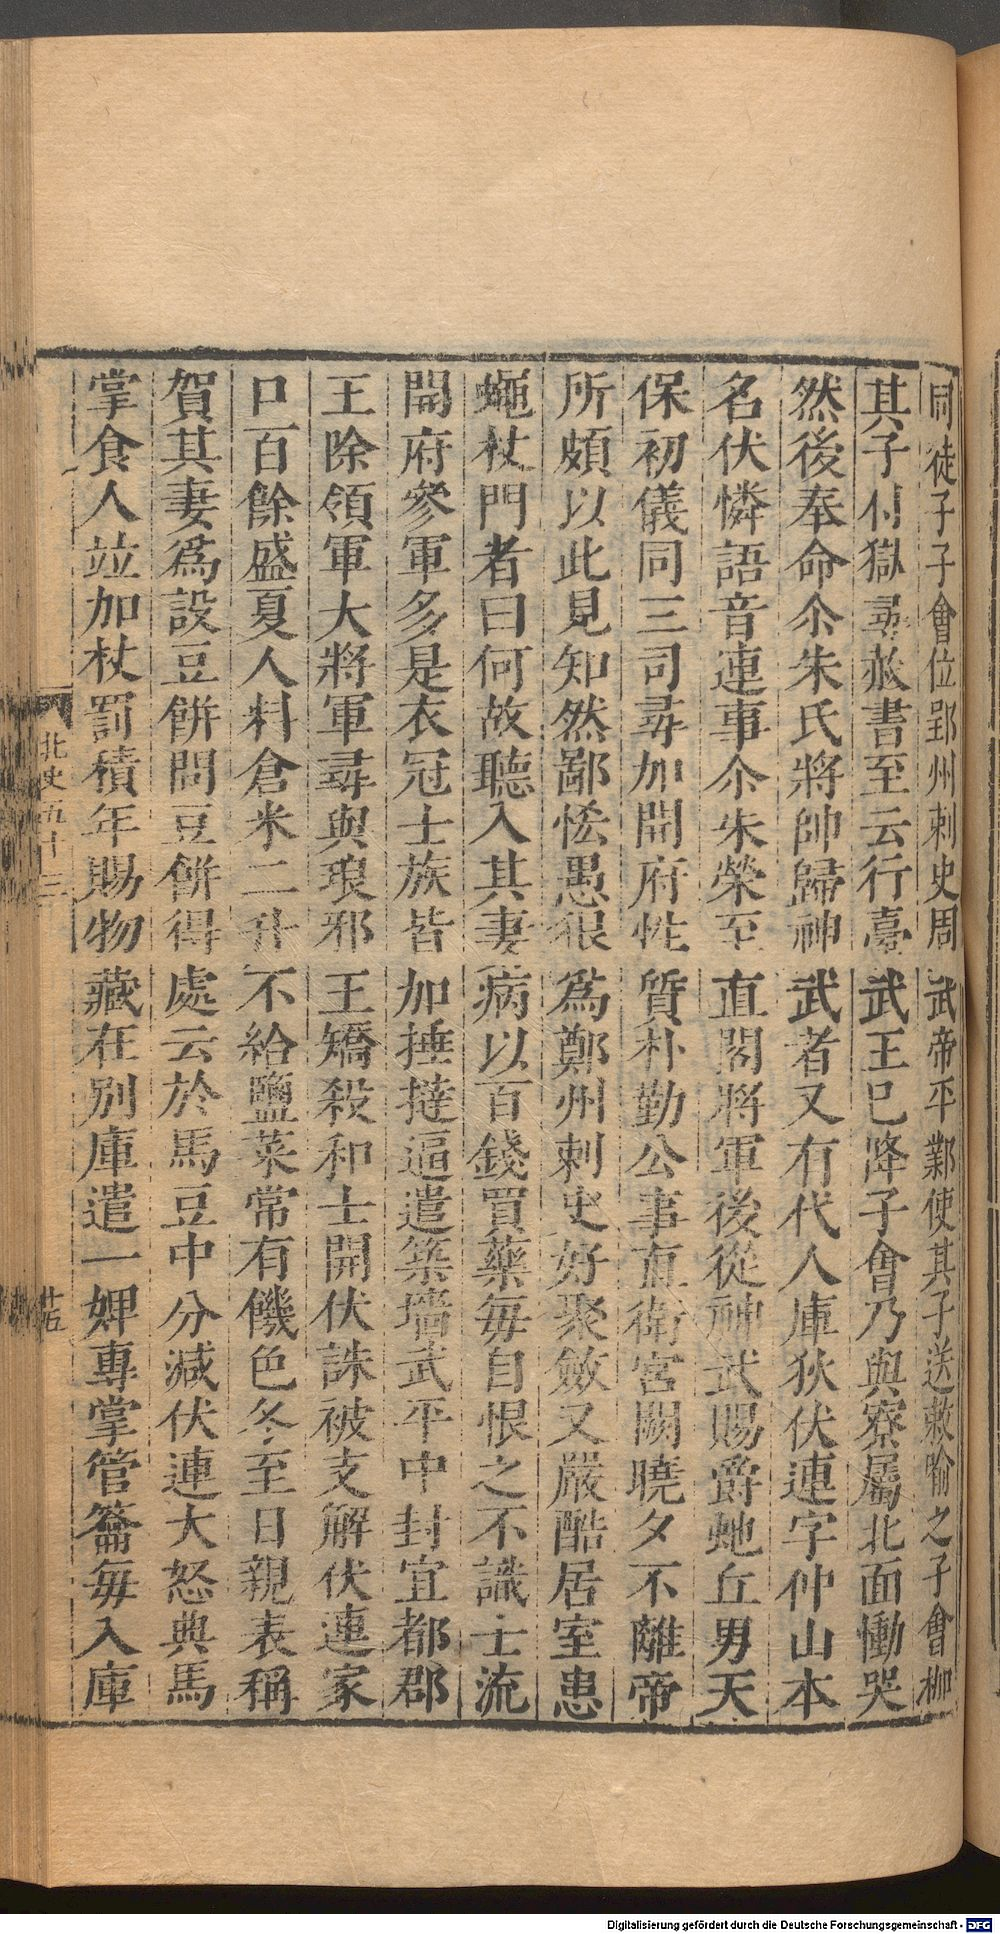 同徒子子會位郢州刺史周武帝平鄴使其子送敕喻之子會枷
其子付獄尋赦書至云行臺武王已降子會乃與寮屬北面慟哭
然後奉命尒朱氏將帥歸神武者又有代人庫狄伏連字仲山本
名伏憐語音連事尒朱榮至直閣將軍後從神武賜爵虵丘男天
保初儀同三司尋加開府性質朴勤公事直衛宮闕曉夕不離帝
所頗以此見知然鄙恡愚狠爲鄭州刺史好聚斂又嚴酷居室患
蠅杖門者曰何故聽入其妻病以百錢買藥每自恨之不識士流
開府參軍多是衣冠士族皆加捶撻逼遣築墻武平中封宜都郡
王除領軍大將軍尋與琅邪王矯殺和士開伏誅被支解伏連家
口百餘盛夏人料倉米二升不給鹽菜常有饑色冬至日親表稱
賀其妻爲設豆餅問豆餅得處云於馬豆中分減伏連大怒典馬
掌食人竝加杖罰積年賜物藏在別庫遣一婢專掌管籥每入庫
北史五十三
廿五
Digitalisierung gefördert durch die Deutsche Forschungsgemeinschaft - DFG